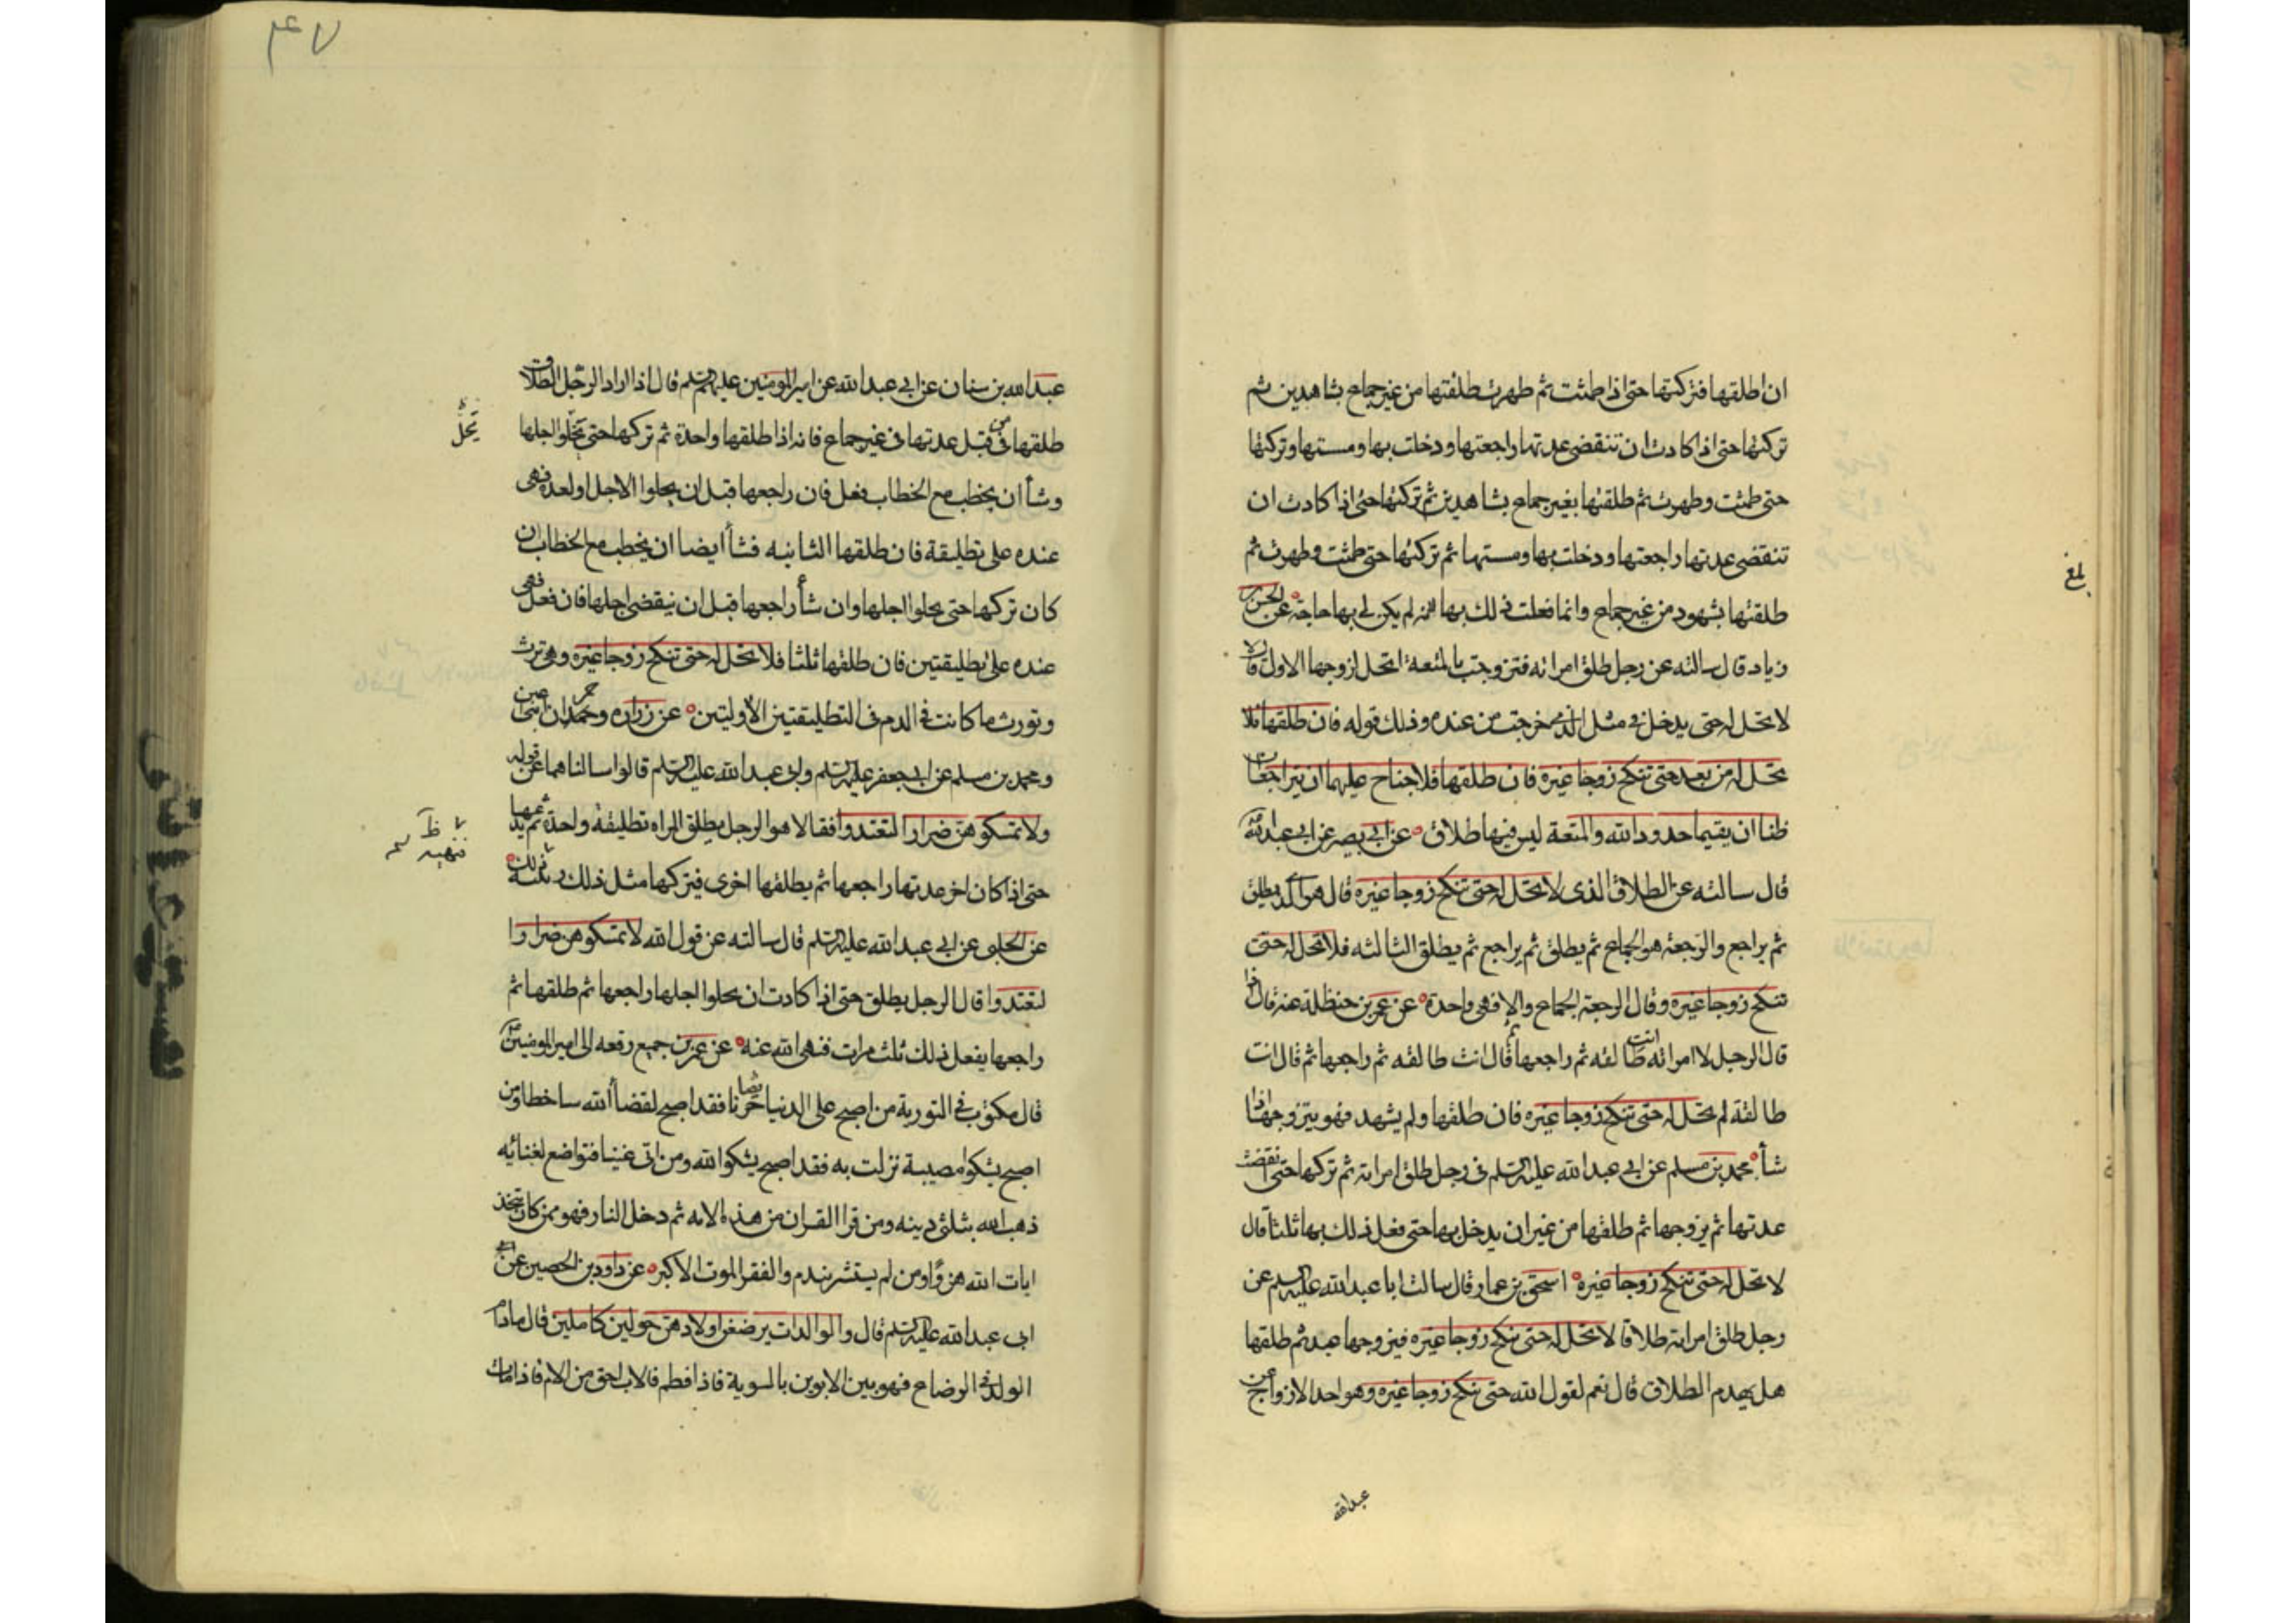 ان اطلقها فتركتها حتى اذا طمثت ثم طهرت طلقتها من غير جماع بشاهدين ثم
تركتها حتى اذا كادت ان تنقضى عدتها راجعتها ودخلت بها ومستها وتركتها
حتى طمثت وطهرت ثم طلقتها بغير جماع بشاهدين ثم تركتها حتى اذا كادت ان
تنقضى عدتها راجعتها ودخلت بها ومستها ثم تركتها حتى طمثت وطهرت ثم
طلقتها بشهود من غير جماع وانما فعلت ذلك بها لانه لم يكن لى بها حاجة عن الحسن بن
زياد قال سالته عن رجل طلق امراته فتزوجت بالمتعة اتحل لزوجها الاول قال لا
لا تحل له حتى يدخل فى مثل الذى خرجت من عنده وذلك قوله فان طلقها فلا
تحل له من بعد حتى تنكح زوجا غيره فان طلقها فلا جناح عليهما ان يتراجعا ان
ظنا ان يقيما حدود الله والمتعة ليس فيها طلاق عن ابى بصير عن ابى عبد الله
قال سالته عن الطلاق الذى لا تحل له حتى تنكح زوجا غيره قال هو الذى يطلق
ثم يراجع والرجعة هو الجماع ثم يطلق ثم يراجع ثم يطلق الثالثه فلا تحل له حتى
تنكح زوجا غيره وقال الرجعة الجماع والا فهى واحدة عن عمر بن حنظلة عنه قال اذا
قال الرجل لامراته انت طالقه ثم راجعها ثم قال انت طالقه ثم راجعها ثم قال انت
طالقة لم تحل له حتى تنكح زوجا غيره فان طلقها ولم يشهد فهو يتزوجها اذا
شأ محمد بن مسلم عن ابى عبد الله عليه السلم فى رجل طلق امراته ثم تركها حتى انقضت
عدتها ثم يزوجها ثم طلقها من غير ان يدخل بها حتى فعل ذلك بها ثلثا قال
لا تحل له حتى تنكح زوجا غيره اسحق بن عمار قال سالت ابا عبد الله عليه السلم عن
رجل طلق امراته طلاقا لا تحل له حتى تنكح زوجا غيره فيزوجها عبد ثم طلقها
هل يهدم الطلاق قال نعم لقول الله حتى تنكح زوجا غيره وهو احد الازواج عن
عبد الله
بلغ
۴۷
عبد الله بن سنان عن ابى عبد الله عن امير المومنين عليهم السلم قال اذا اراد الرجل الطلاق
طلقها من قبل عدتها فى غير جماع فانه اذا طلقها واحدة ثم تركها حتى يخلوا اجلها
وشأ ان يخطب مع الخطاب فعل فان راجعها قبل ان يخلوا الاجل او لعده فهى
عنده على تطليقة فان طلقها الثانيه فشأ ايضا ان يخطب مع الخطاب ان
كان تركها حتى يخلوا اجلها وان شأ راجعها قبل ان ينقضى اجلها فان فعل فهى
عنده على تطليقتين فان طلقها ثلثا فلا تحل له حتى تنكح زوجا غيره وهى ترث
وتورث ما كانت فى الدم فى التطليقتين الاوليتين عن زراره وحمران ابنى اعين
ومحمد بن مسلم عن ابى جعفر عليه السلم وابى عبد الله عليه السلم قالوا سالناهما عن قوله
ولا تمسكوهن ضرارا لتعتدوا فقالا هو الرجل يطلق المراه تطليقة واحدة ثم يدعها
حتى اذا كان اخر عدتها راجعها ثم يطلقها اخرى فيتركها مثل ذلك
عن الحلبى عن ابى عبد الله عليه السلم قال سالته عن قول الله لا تمسكوهن ضرارا
لتعتدوا قال الرجل يطلق حتى اذا كادت ان يخلوا اجلها راجعها ثم طلقها ثم
راجعها يفعل ذلك ثلث مرات فنهى الله عنه عن عمر بن جميع رفعه الى امير المومنين
قال مكتوب فى التورية من اصبح على الدنيا حزينا فقد اصبح لقضأ الله ساخطا ومن
اصبح يشكوا مصيبة نزلت به فقد اصبح يشكوا الله ومن اتى غنيا فتواضع لغنائه
ذهب الله بثلثى دينه ومن قرا القران من هذه الامه ثم دخل النار فهو ممن كان يتخذ
ايات الله هزوا ومن لم يستشر يندم والفقر الموت الاكبر عن داود بن الحصين عن
ابى عبد الله عليه السلم قال والوالدات يرضعن اولادهن حولين كاملين قال مادام
الولد فى الرضاع فهو بين الابوين بالسوية فاذا فطم فالاب احق من الام فاذا مات